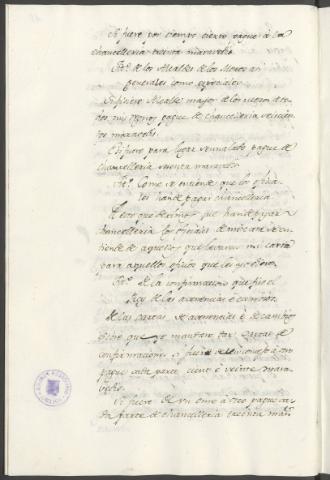 Si fuere por tiempo cierto pague a la
chancelleria treinta maravedis
Tit.º de los Alcaldes de los Moros
generales como especiales
Si fuere Alcalde mayor de los moros de to
dos mis regnos pague de chancelleria seiscien
tos maravedis
E si fuere para lugar señalado pague de
chancelleria sesenta maravedis
Tit.º Como se entiende que los oficia
les han de pagar chancelleria
E esto que decimos que han de pagar
chancelleria los oficiales de mi corte se en
tiende de aquellos que levaren mi carta
para aquellos oficios que les yo diere
Tit.º de la confirmacion que ficiere el
Rey de las avenencias e camios
De las cartas de avenencias e de cambio
que yo mandare dar cartas de
confirmacion si fuere de concejo a con
pague cada parte ciento e veinte mara
vedis
Si fuere de un ome a otro pague ca
da parte de chancelleria treinta mrs.